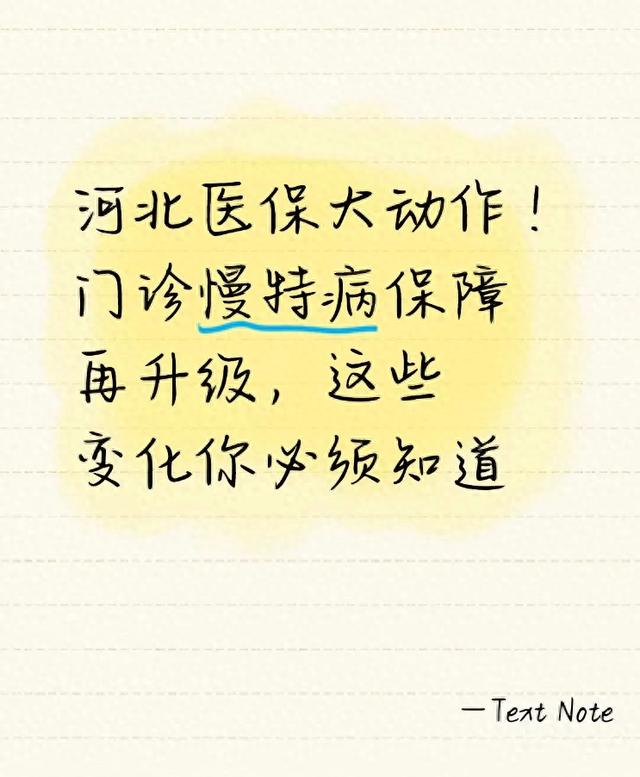 河北医保大动作！
门诊慢特病保障
再升级，这些
变化你必须知道
—Text Note